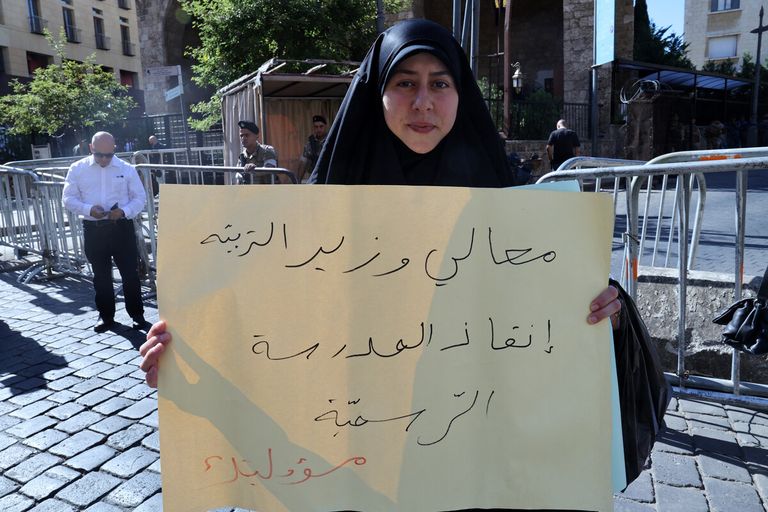 معالي وزير التربية
إنقاذ المدرسة
الرّسميّة
مسؤوليتك